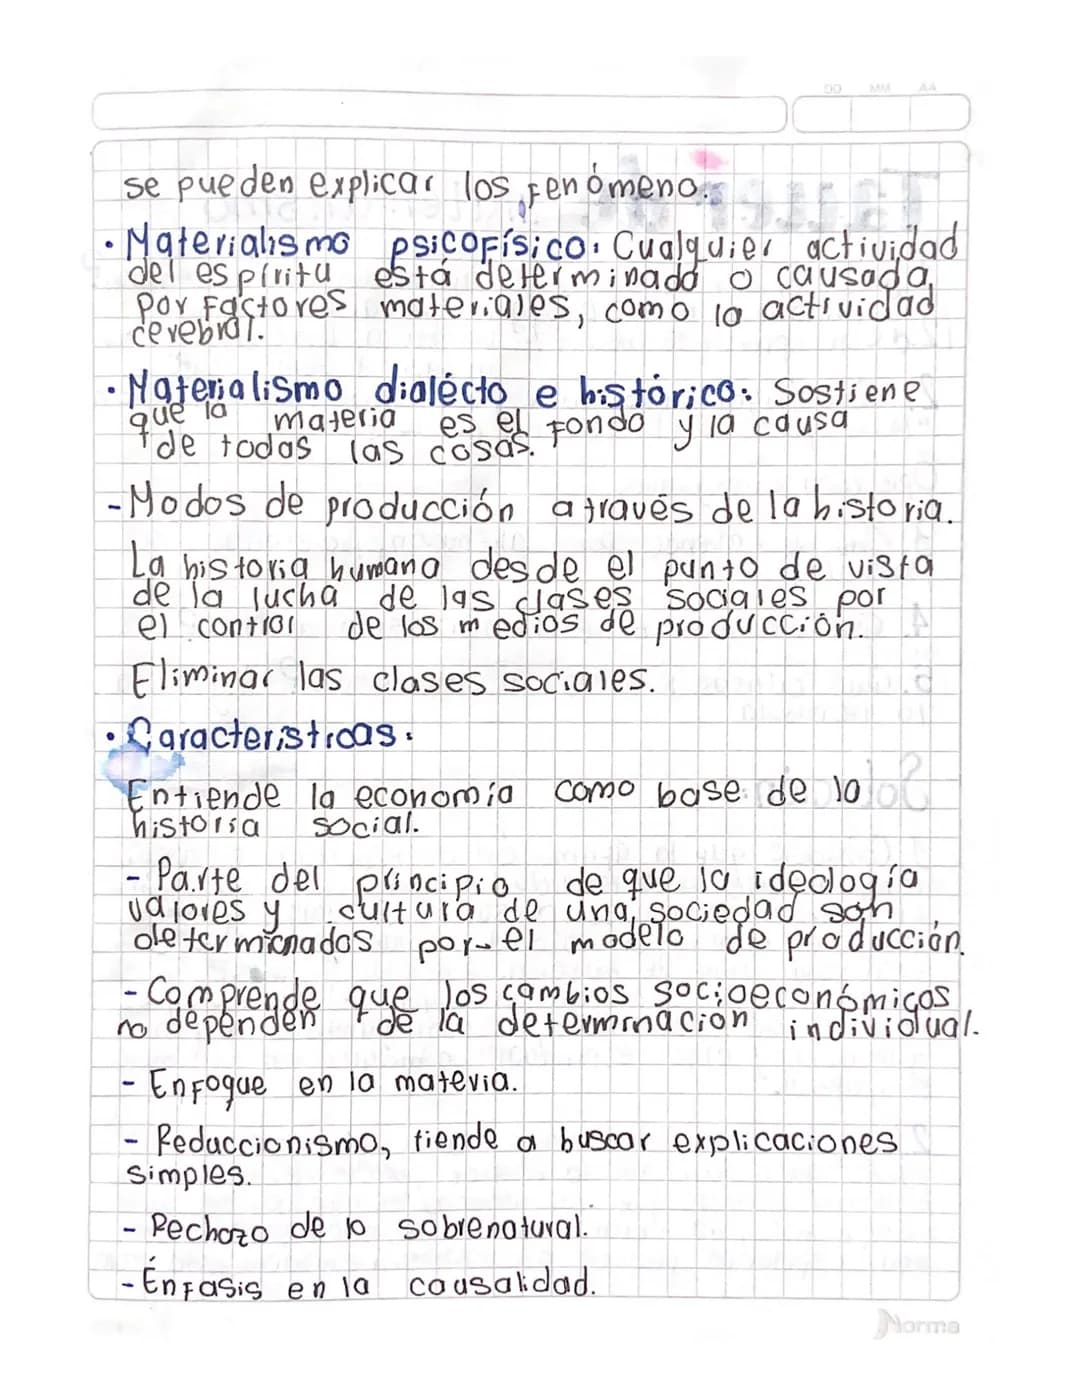 DD MM AA
se pueden explicar los fenómeno.
• Materialismo psicofísico: Cualquier actividad
del espíritu está determinado o causada
por factores materiales, como la actividad
cerebral.
• Materialismo dialécto e histórico: Sostiene
que la materia es el fondo y la causa
de todas las cosas.
- Modos de producción a través de la historia.
La historia humana desde el punto de vista
de la lucha de las clases sociales por
el control de los medios de producción.
Eliminar las clases sociales.
• Características:
Entiende la economía como base de la
historia social.
- Parte del principio de que la ideología
valores y cultura de una sociedad son
determinados por el modelo de producción.
- Comprende que los cambios socioeconómicos
no dependen de la determinación individual.
- Enfoque en la materia.
- Reduccionismo, tiende a buscar explicaciones
simples.
- Rechazo de lo sobrenatural.
- Énfasis en la causalidad.
Norma